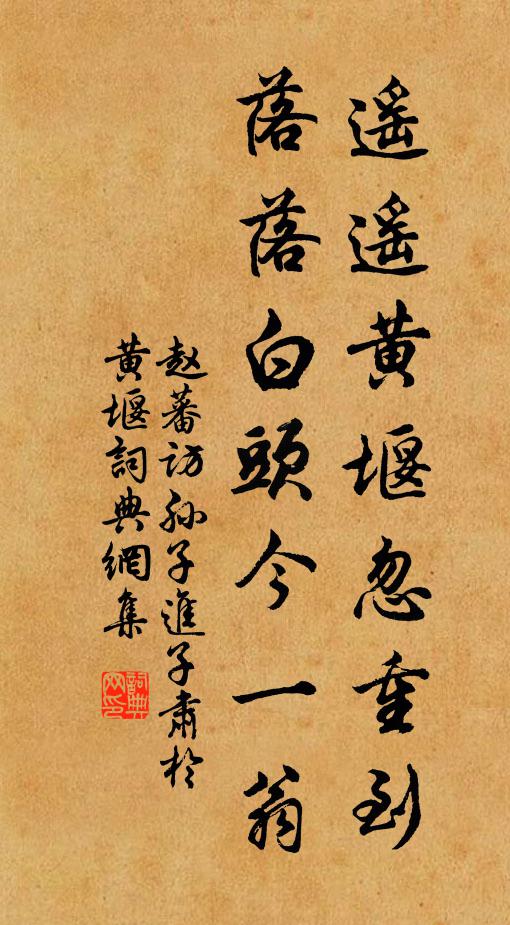 遥遥黄堰忽重到
落落白頭今一翁
赵蕃访孙子進子肅於
黄堰詞典網集
詞典网印